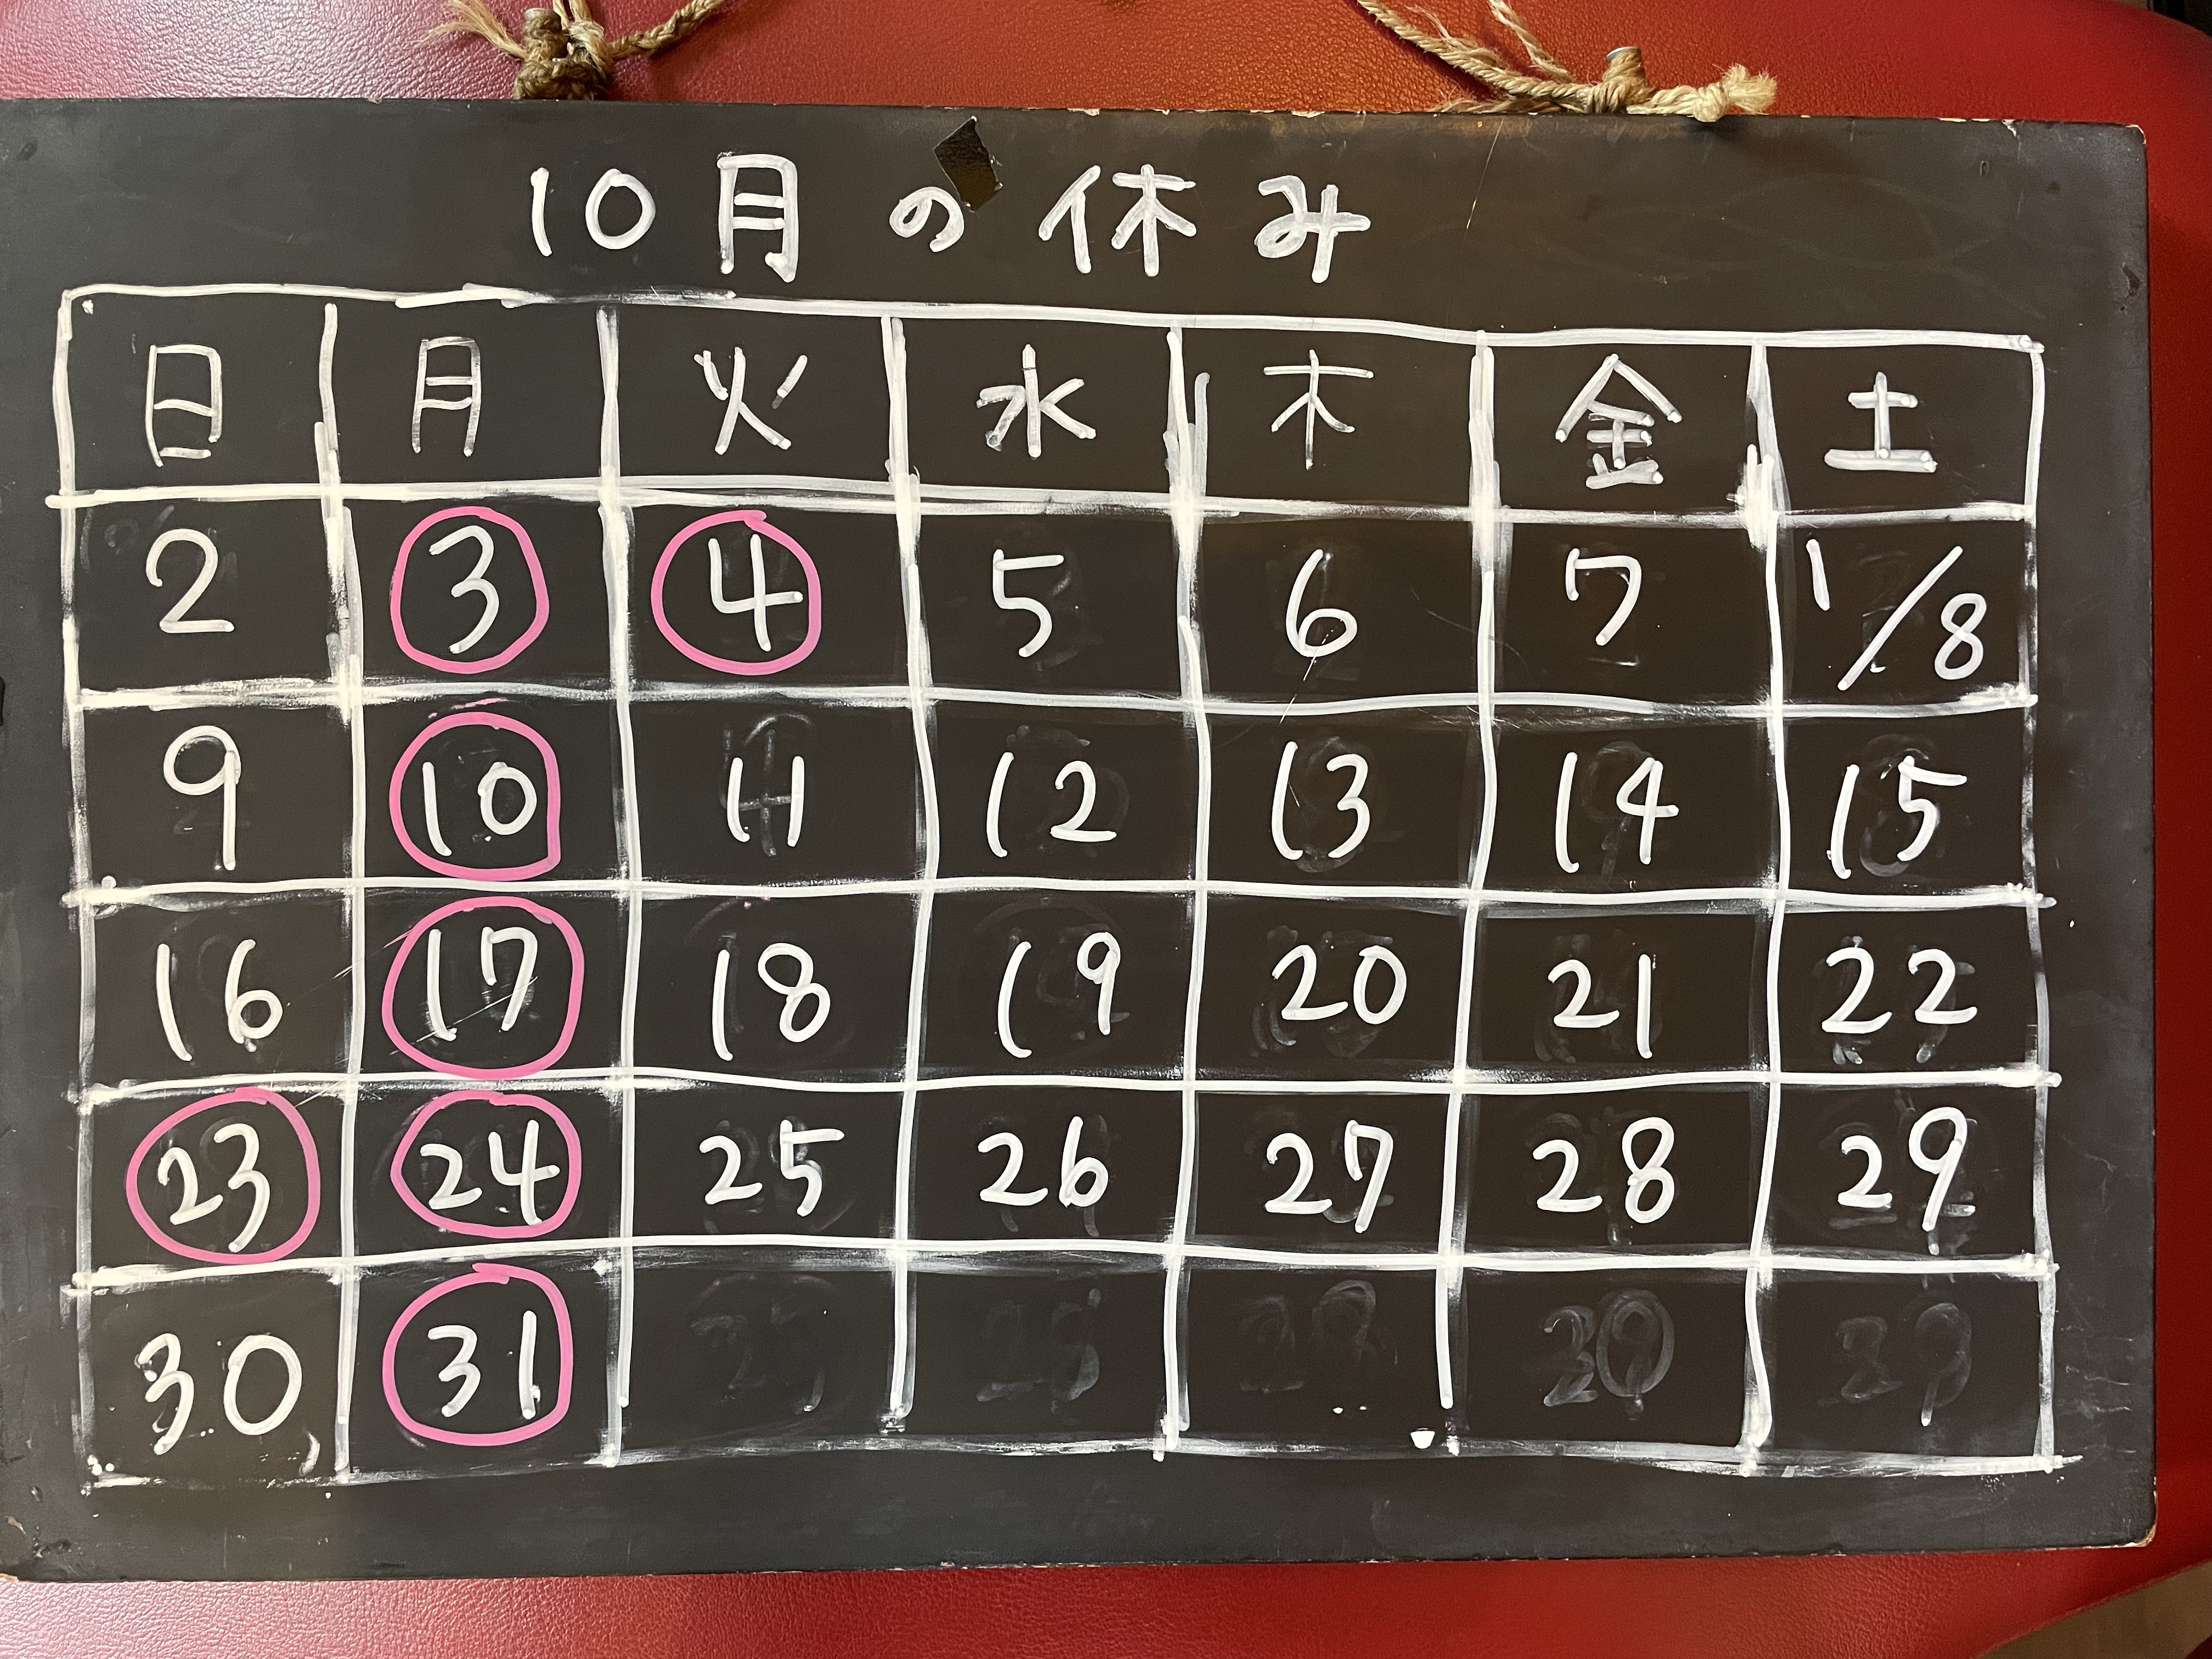 10月の休み
日 月 火 水 木 金 土
2 3 4 5 6 7 1/8
9 10 11 12 13 14 15
16 17 18 19 20 21 22
23 24 25 26 27 28 29
30 31